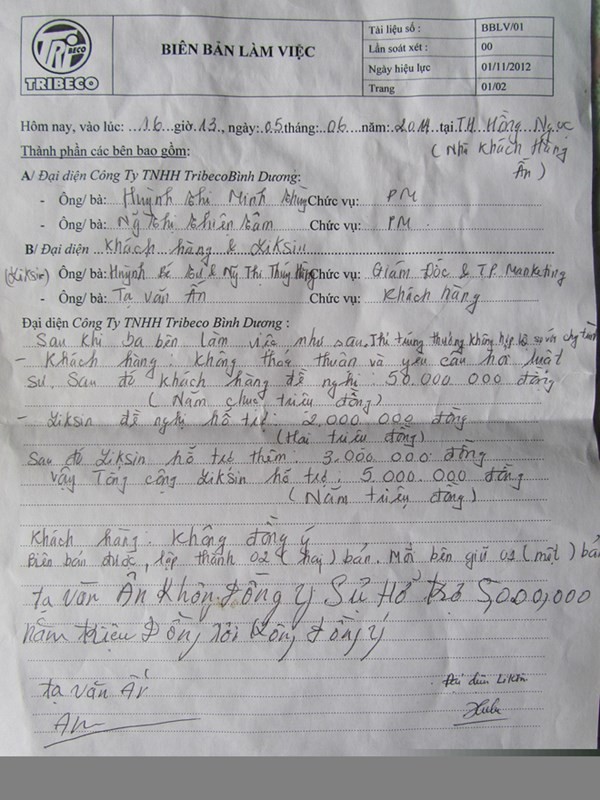 TRI BECO
TRIBECO
BIÊN BẢN LÀM VIỆC
Tài liệu số : BBLV/01
Lần soát xét : 00
Ngày hiệu lực 01/11/2012
Trang 01/02
Hôm nay, vào lúc: 16 giờ 13, ngày: 05 tháng: 06 năm: 2014 tại T.H. Hồng Ngự
Thành phần các bên bao gồm: ( Nhà khách hàng
Ấn )
A/ Đại diện Công Ty TNHH TribecoBình Dương:
- Ông/ bà: Huỳnh thị Minh thùy Chức vụ: PM
- Ông/ bà: Ng thị thiên tâm Chức vụ: PM
B/ Đại diện khách hàng & Liksin
(Liksin) Ông/ bà: Huỳnh Bá Lư & Ng Thị Thúy Hằng Chức vụ: Giám Đốc & T.P. Marketing
- Ông/ bà: Tạ Văn Ấn Chức vụ: Khách hàng
Đại diện Công Ty TNHH Tribeco Bình Dương :
Sau khi ba bên làm việc như sau. Thì trúng thưởng không hợp lệ so với
- Khách hàng : Không thỏa thuận và yêu cầu hỏi luật
sư. Sau đó khách hàng đề nghị : 50.000 000 đồng
( Năm chục triệu đồng)
- Liksin đề nghị hỗ trợ : 2.000 000 đồng
(Hai triệu đồng)
Sau đó Liksin hỗ trợ thêm : 3.000 000 đồng
Vậy Tổng cộng Liksin hỗ trợ : 5.000 000 đồng
( Năm triệu đồng )
Khách hàng : Không đồng ý
Biên bản được lập thành 02 ( hai ) bản. Mỗi bên giữ 01 ( một ) bả
tạ văn Ấn Không Đồng ý Sự Hổ trợ 5000,000
năm triệu Đồng tôi không Đồng ý
tạ văn Ấn
Đại diện Liksin